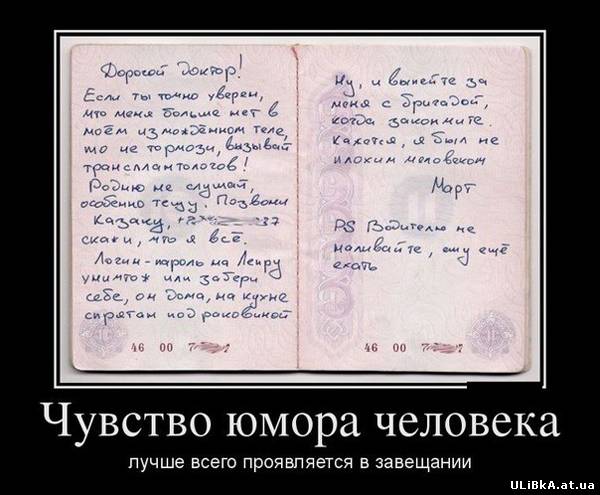 Дорогой доктор!
Если ты точно уверен,
что меня больше нет в
моём измождённом теле,
то не тормози, вызывай
трансплантологов!
Родню не слушай,
особенно тещу. Позвони
Казаку, 37
скажи, что я всё.
Логин-пароль на Лепру
уничтож или забери
себе, он дома, на кухне
спрятан под раковиной
46 00 7
Ну, и выпейте за
меня с бригадой,
когда закончите.
Кажется, я был не
плохим человеком
Март
PS Водителю не
наливайте, ему ещё
ехать
46 00 7
Чувство юмора человека
лучше всего проявляется в завещании
ULiBkA.at.ua